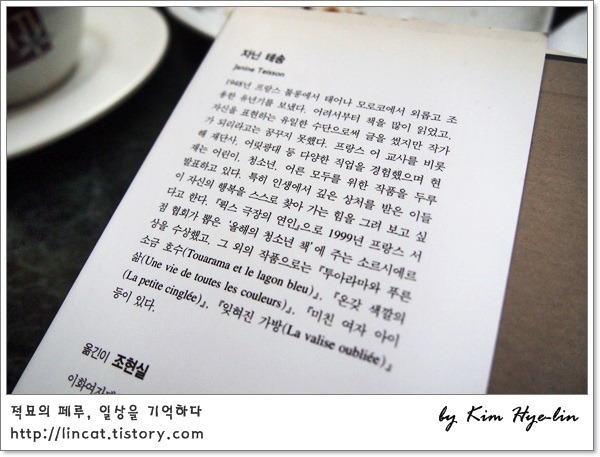 자닌 테송
Janine Teisson
1948년 프랑스 툴롱에서 태어나 모로코에서 외롭고 조
용한 유년기를 보냈다. 어려서부터 책을 많이 읽었고,
자신을 표현하는 유일한 수단으로써 글을 썼지만 작가
가 되리라고는 꿈꾸지 못했다. 프랑스 어 교사를 비롯
해 재단사, 어릿광대 등 다양한 직업을 경험했으며 현
재는 어린이, 청소년, 어른 모두를 위한 작품을 두루
발표하고 있다. 특히 인생에서 깊은 상처를 받은 이들
이 자신의 행복을 스스로 찾아 가는 힘을 그려 보고 싶
다고 한다. 『렉스 극장의 연인』으로 1999년 프랑스 서
점 협회가 뽑은 '올해의 청소년 책'에 주는 소르시에르
상을 수상했고, 그 외의 작품으로는 『투아라마와 푸른
소금 호수(Touarama et le lagon bleu)』, 『온갖 색깔의
삶(Une vie de toutes les couleurs)』, 『미친 여자 아이
(La petite cinglée)』, 『잊혀진 가방(La valise oubliée)』
등이 있다.
옮긴이 조현실
이화여자대
적묘의 페루, 일상을 기억하다
by Kim Hye-lin
http://lincat.tistory.com